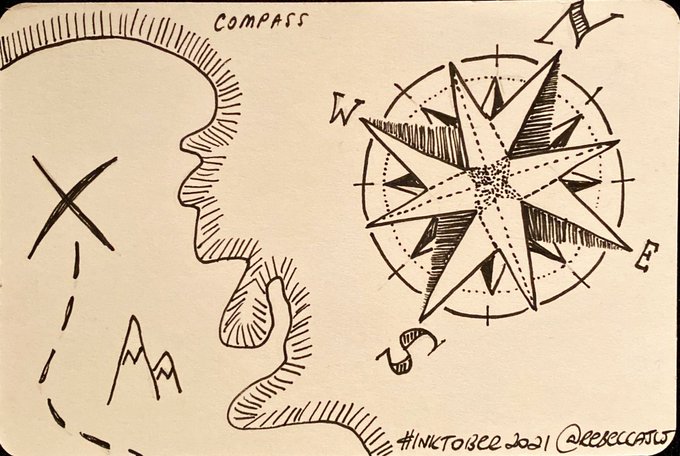 COMPASS
N
W
E
S
#INKTOBER 2021 @REBECCAJW